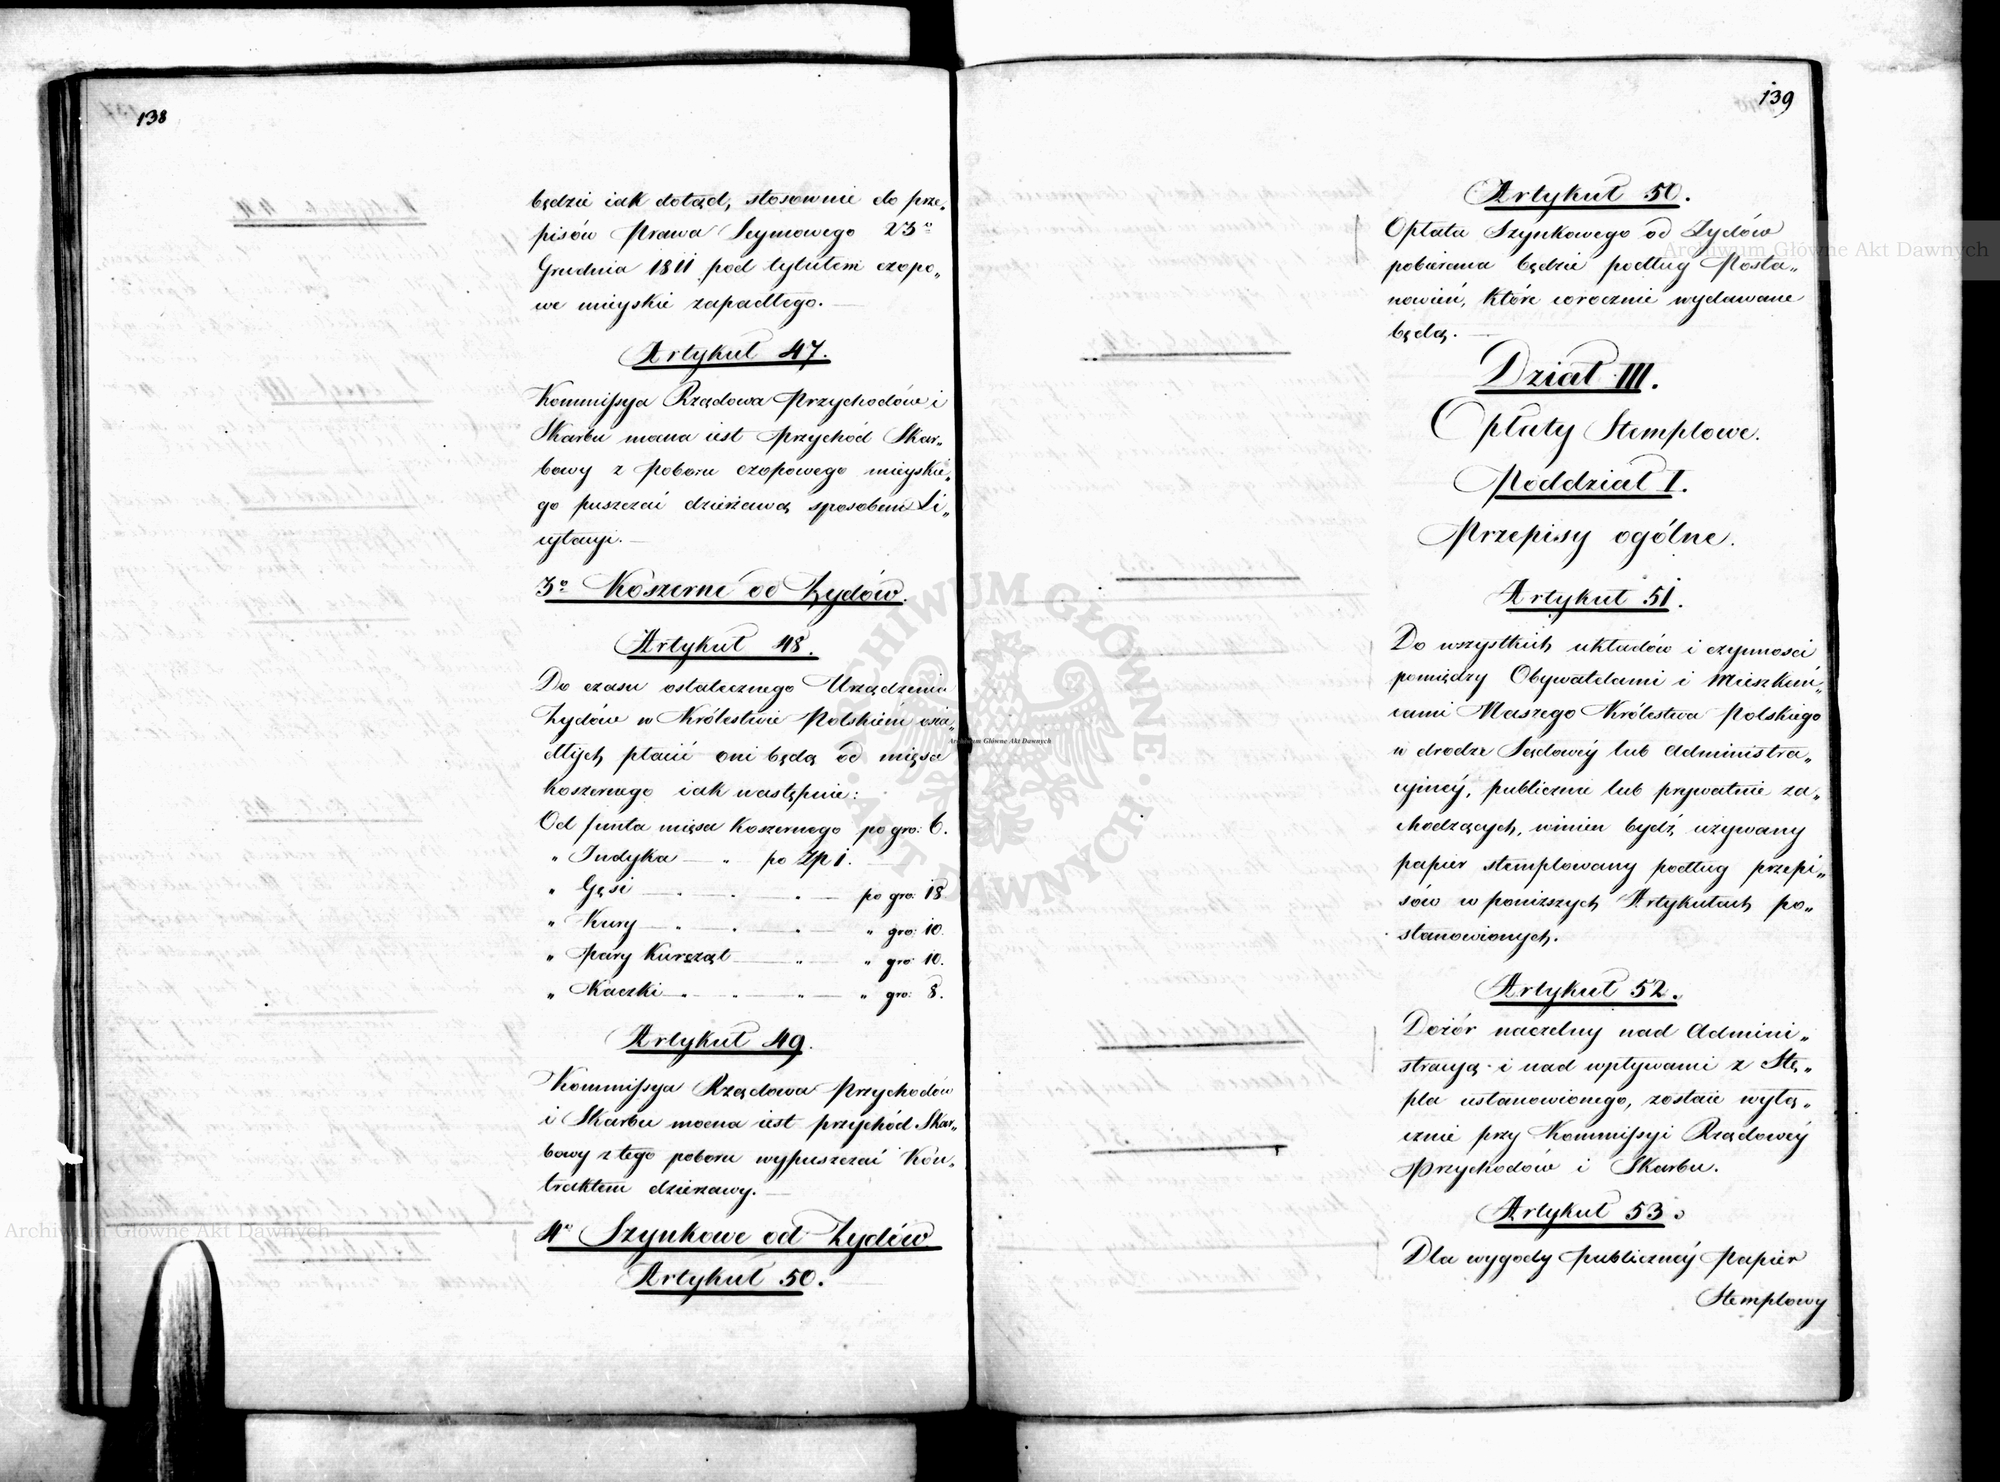 138
będzie iak dotąd, stosownie do prze„
pisów Prawa Seymowego 23º
Grudnia 1811 pod tytułem czopo„
we mieyskie zapadłego.
Artykuł 47.
Kommissya Rządowa Przychodów i
Skarbu mocna iest przychód Skar„
bowy z poboru czopowego mieyskie„
go puszczać dzierżawą sposobem Li„
cytacyi.
3º Koszerne od Żydów.
Artykuł 48.
Do czasu ostatecznego Urządzenia
Żydów w Królestwie Polskiém osia„
dłych płacić oni będą od mięsa
koszernego iak następuie:
Od funta mięsa koszernego po gro: 6.
„ Indyka — „ po Zp 1.
„ Gęsi — „ — „ — po gro: 18
„ Kury — „ — „ — „ gro: 10.
„ Pary Kurcząt — „ — „ gro: 10.
„ Kaczki — „ — „ — „ gro: 8.
Artykuł 49.
Kommissya Rządowa Przychodów
i Skarbu mocna iest przychód Skar„
bowy z tego poboru wypuszczać Kon„
traktem dzierżawy.
4º Szynkowe od Żydów
Artykuł 50.
139
Artykuł 50.
Opłata Szynkowego od Żydów
pobierana będzie podług Posta„
nowień, które corocznie wydawane
będą.
Dział III.
Opłaty Stemplowe.
Poddział I.
Przepisy ogólne.
Artykuł 51.
Do wszystkich układów i czynności
pomiędzy Obywatelami i Mieszkań„
cami Naszego Królestwa Polskiego
w drodze Sądowéy lub Administra„
cyinéy, publicznie lub prywatnie za„
chodzących, winien bydź używany
papier stemplowany podług przepi„
sów w poniższych Artykułach po„
stanowionych.
Artykuł 52.
Dozór naczelny nad Admini„
stracyą i nad wpływami z Stę„
pla ustanowionego, zostaie wyłą„
cznie przy Kommissyi Rządowéy
Przychodów i Skarbu.
Artykuł 53.
Dla wygody publicznéy Papier
Stemplowy
Archiwum Główne Akt Dawnych
Archiwum Główne Akt Dawnych
Archiwum Główne Akt Dawnych
ARCHIWUM GŁÓWNE AKT DAWNYCH